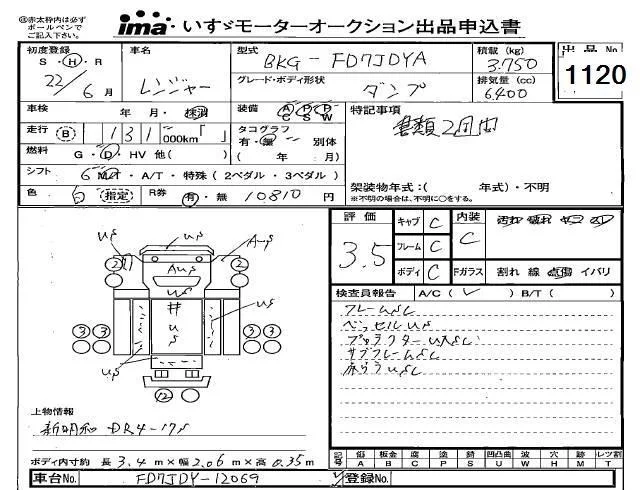 ㊟赤太枠内は必ず
ボールペンで
ご記入下さい。
ima いすゞモーターオークション出品申込書
初度登録
S・H・R
22/6月
車名
レンジャー
型式
BKG-FD7JDYA
グレード・ボディ形状
ダンプ
積載(kg)
3.750
排気量(cc)
6.400
出品No
1120
車検
年 月・抹消
装備
A P P
C S W
特記事項
書類2週間
走行
B
131,000km「 」
タコグラフ
有・無 別体
( 年 月)
燃料
G・D・HV 他( )
シフト
6 M/T・A/T・特殊(2ペダル・3ペダル)
架装物年式:( 年式)・不明
※不明の場合は、不明に○をする。
色
白 指定
R券
有・無 10810円
評価
3.5
キャブ C
フレーム C
ボディ C
内装
C
汚れ
Fガラス
割れ 線 点傷 イバリ
検査員報告
A/C(✓) B/T( )
フレームSC
ベッセルUS
サブフレームSC
US
US
A-US
2
2
AUS
US
井
US
US
US
US
3 3
3 3
12
上物情報
新明和 DR4-17S
ボディ内寸約 長 3.4m×幅 2.06m×高 0.35m
記号
傷 板金 腐 塗 錆 凹凸曲 波 穴 跡 レツ割
A B C P S U W H M T
車台No.
FD7JDY-12069
登録No.